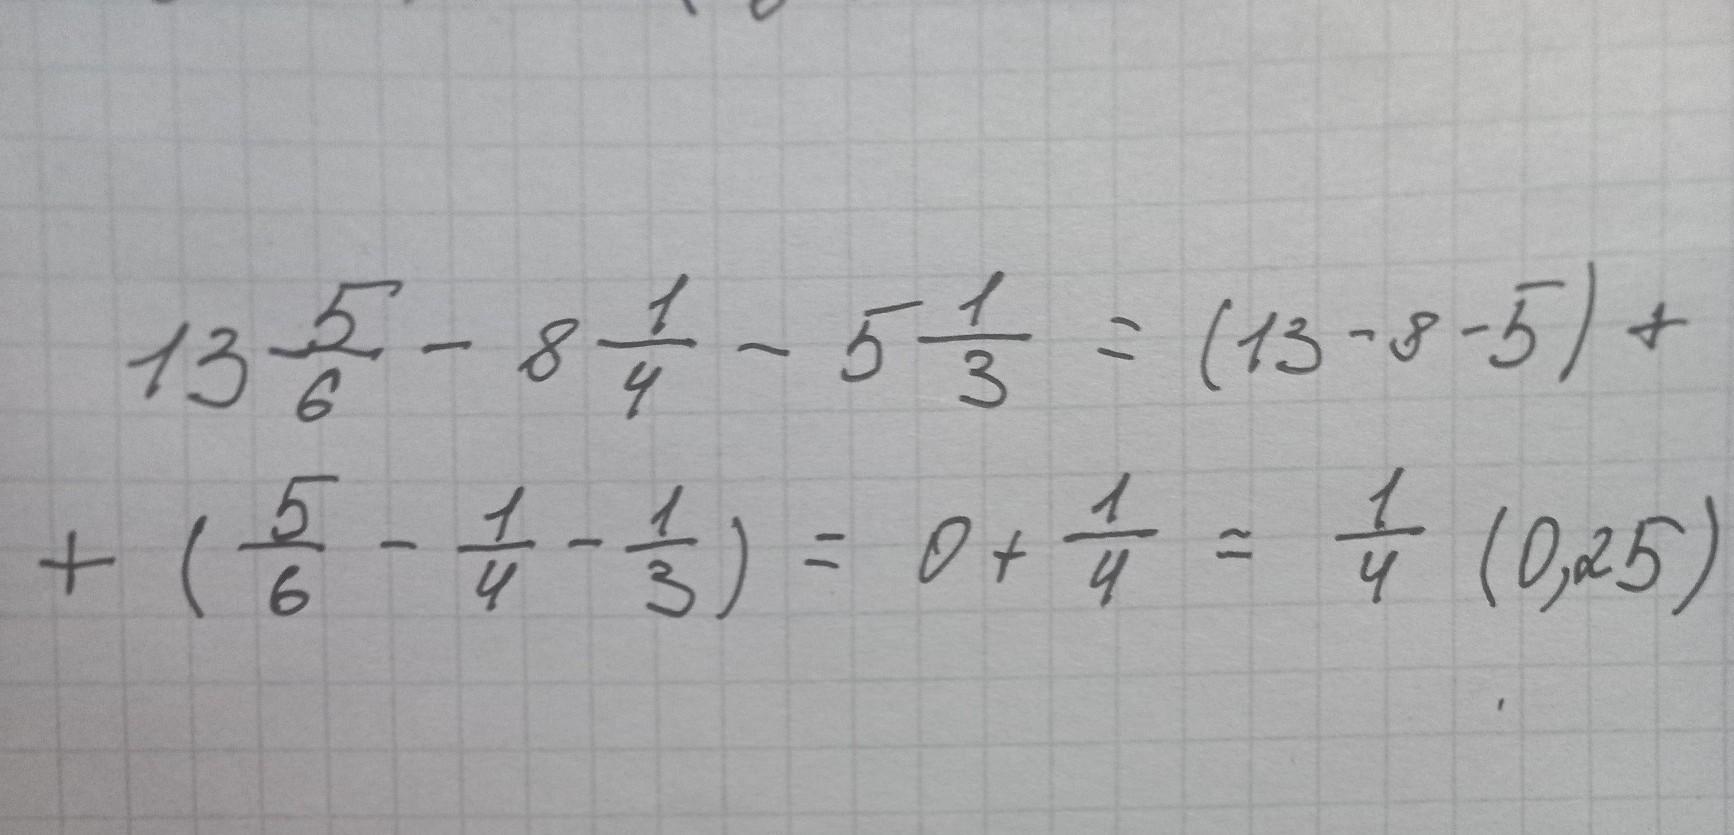 13 5/6 - 8 1/4 - 5 1/3 = (13 - 8 - 5) +
+ (5/6 - 1/4 - 1/3) = 0 + 1/4 = 1/4 (0,25)